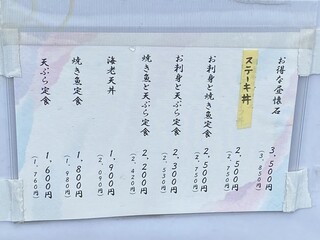 お得な昼懐石 3,500円
(3,850)
ステーキ丼 2,500円
(2,750)
お刺身と焼き魚定食 2,500円
(2,750)
お刺身と天ぷら定食 2,300円
(2,530)
焼き魚と天ぷら定食 2,200円
(2,420)
海老天丼 1,900円
(2,090円)
焼き魚定食 1,800円
(1,980円)
天ぷら定食 1,600円
(1,760円)